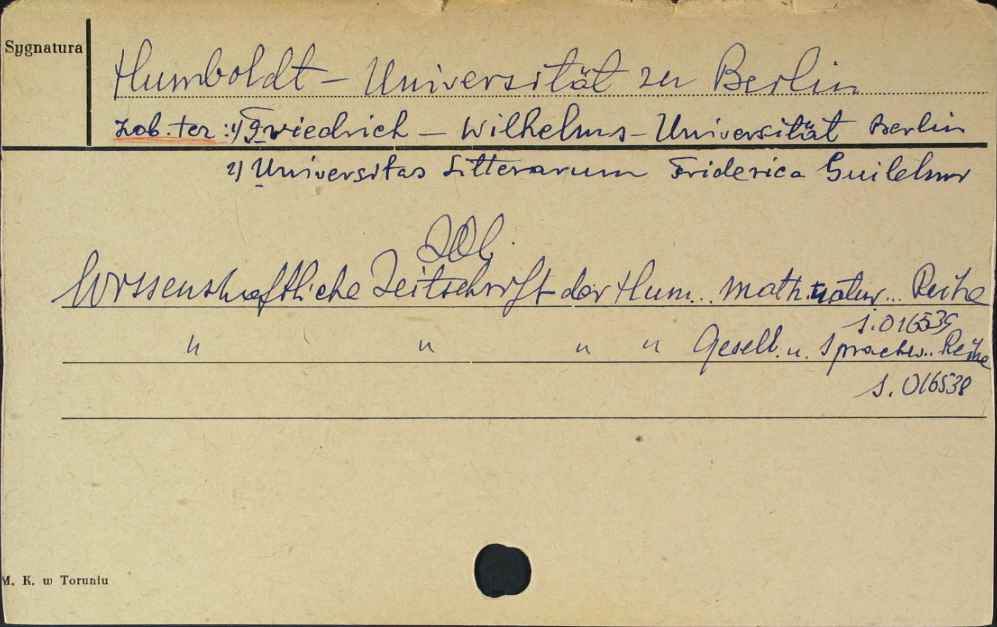 Sygnatura
Humboldt - Universität zu Berlin
Zob. też: 1) Friedrich - Wilhelms - Universität Berlin
2) Universitas Litterarum Friderica Guilelm
Wissenschaftliche Zeitschrift der Hum... math. natur... Reihe
s. 016539
" " " " Gesell. u. Sprachw.. Reihe
s. 016538
M. K. w Toruniu